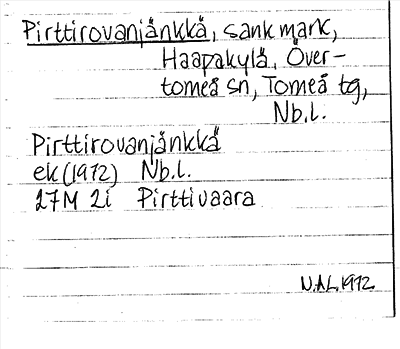 Pirttirovanjänkkä, sank mark,
Haapakylä, Över-
torneå sn, Torneå tg,
Nb.l.
Pirttirovanjänkkä
ek (1972) Nb.l.
27M 2i Pirttivaara
N.Å.L. 1972